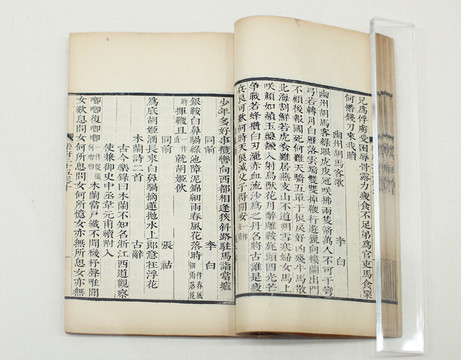 兄爲俘虜受困辱骨露力疲食不足弟爲官吏馬食粟
何惜錢刀來我贖
幽州胡馬客歌　李白
幽州胡馬客綠眼虎皮冠咲拂兩隻箭萬人不可干彎
弓若轉月白雁落雲端雙雙掉鞭行遊獵向樓蘭出門
不顧後報國死何難天驕五單于狼戾好凶殘牛馬散
北海割鮮若虎餐雖居燕支山不道朔雪寒婦女馬上
咲顏如玉飛射鳥獸花月醉雕鞍旄頭四光芒
爭戰若蜂攢白刃灑赤血流沙爲之丹名將古誰是疲
兵良可歎何時天狼滅父子得閒安
少年多好事攬轡向西都相逢狹斜路駐馬詣當壚
同前　李白
銀鞍白鼻騧綠地障泥錦細雨春風花落時
揮鞭直就胡姬飲
同前　張祜
爲底胡姬酒長來白鼻騧摘蓮拋水上郎意在浮花
木蘭詩二首　古辭
古今樂錄曰木蘭不知名浙江西道觀察
使兼御史中丞韋元甫續附入
唧唧復唧唧木蘭當戶織不聞機杼聲唯聞
女歎息問女何所思問女何所憶女亦無所思女亦無